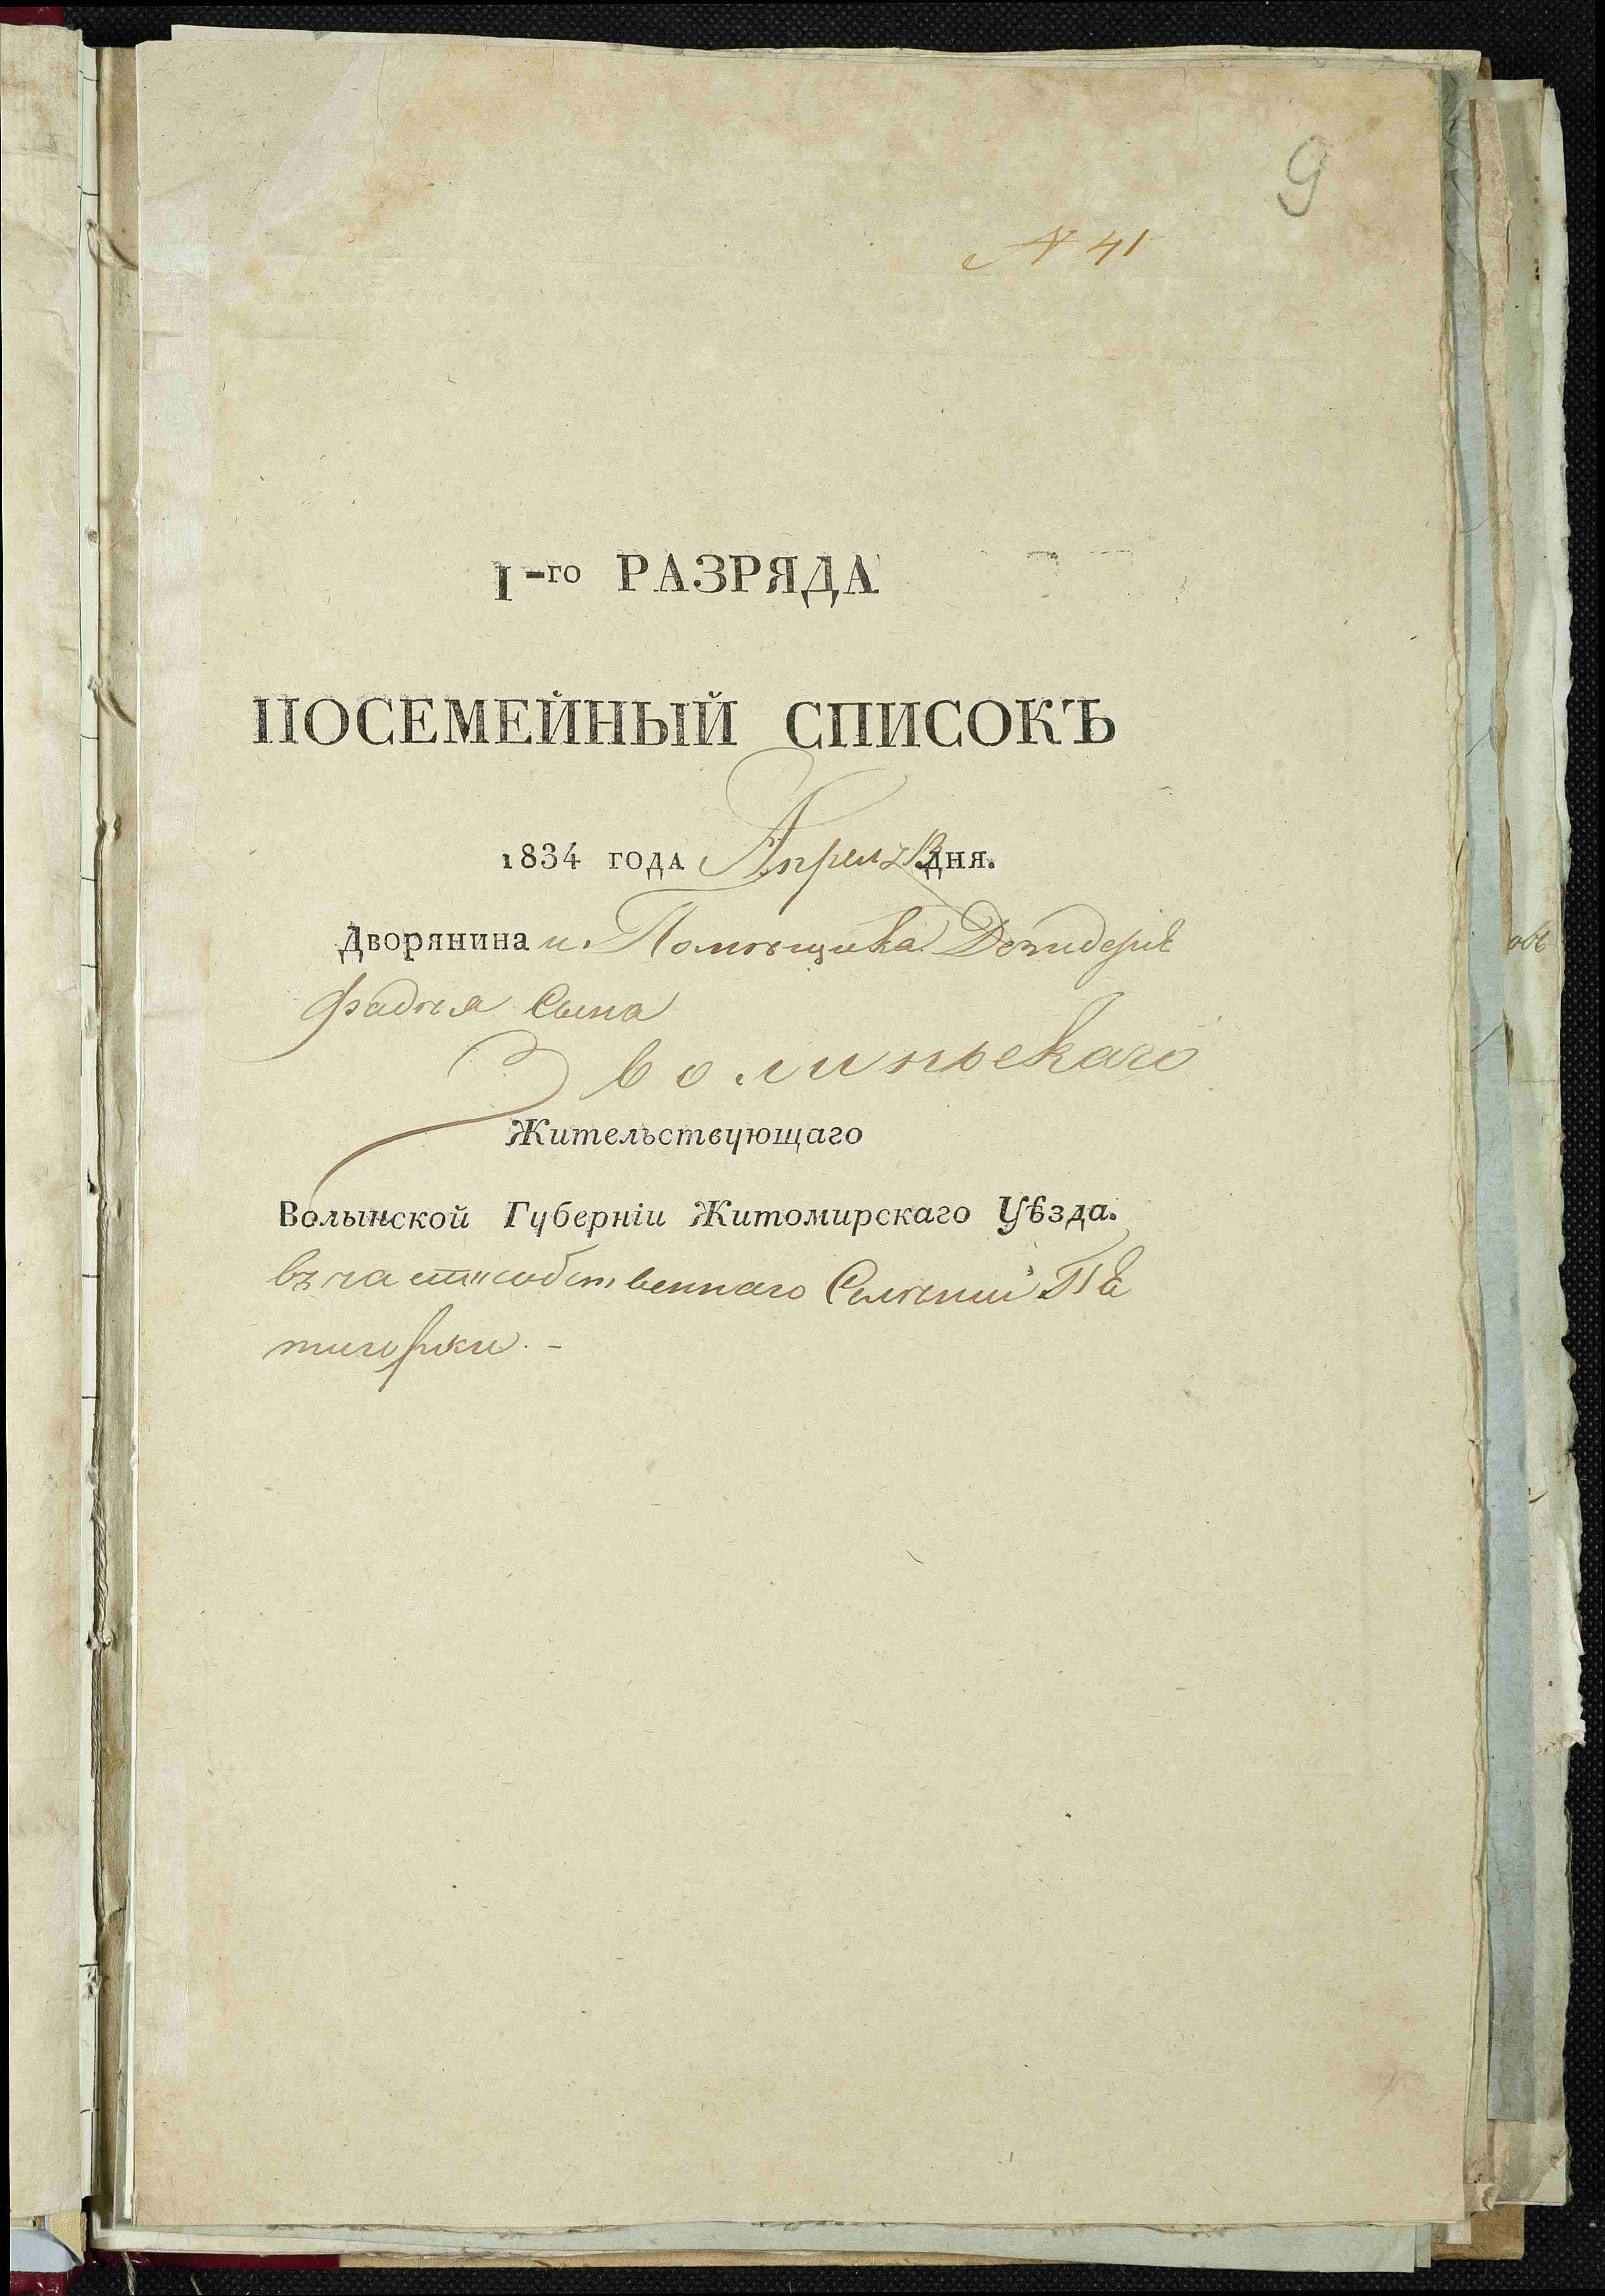 9
№ 41
I-го РАЗРЯДА
ПОСЕМЕЙНЫЙ СПИСОКЪ
1834 года Апреля 13 дня.
Дворянина и Помѣщика Дезидерія
Фадѣя Сына
Зволиньскаго
Жительствующаго
Волынской Губерніи Житомирскаго Уѣзда.
въ части собственнаго Селенія Пя
тигорки. -